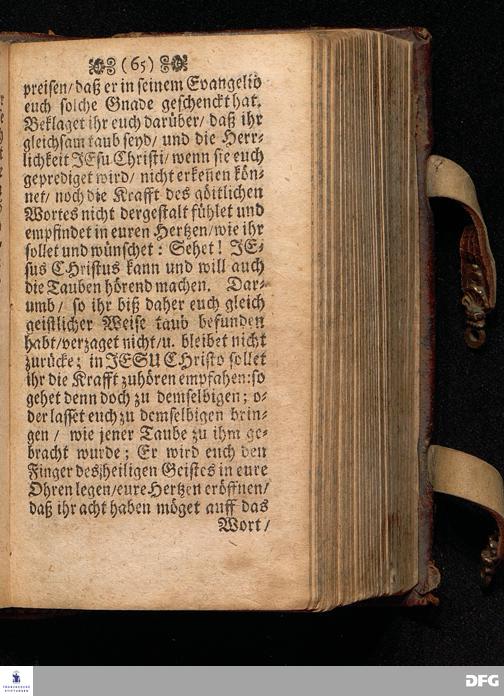 (65)
preisen/ daß er in seinem Evangelio
euch solche Gnade geschenckt hat.
Beklaget ihr euch darüber/ daß ihr
gleichsam taub seyd/ und die Herr-
lichkeit JEsu Christi/ wenn sie euch
geprediget wird/ nicht erkeñen kön-
net/ noch die Krafft des göttlichen
Wortes nicht dergestalt fühlet und
empfindet in euren Hertzen/ wie ihr
sollet und wünschet: Sehet! JE-
sus CHristus kann und will auch
die Tauben hörend machen. Dar-
umb/ so ihr biß daher euch gleich
geistlicher Weise taub befunden
habt/ verzaget nicht/ u. bleibet nicht
zurücke; in JESU CHristo sollet
ihr die Krafft zuhören empfahen: so
gehet denn doch zu demselbigen; o-
der lasset euch zu demselbigen brin-
gen/ wie jener Taube zu ihm ge-
bracht wurde; Er wird euch den
Finger des heiligen Geistes in eure
Ohren legen/ eure Hertzen eröffnen/
daß ihr acht haben möget auff das
Wort/
FRANCKESCHE
STIFTUNGEN
DFG